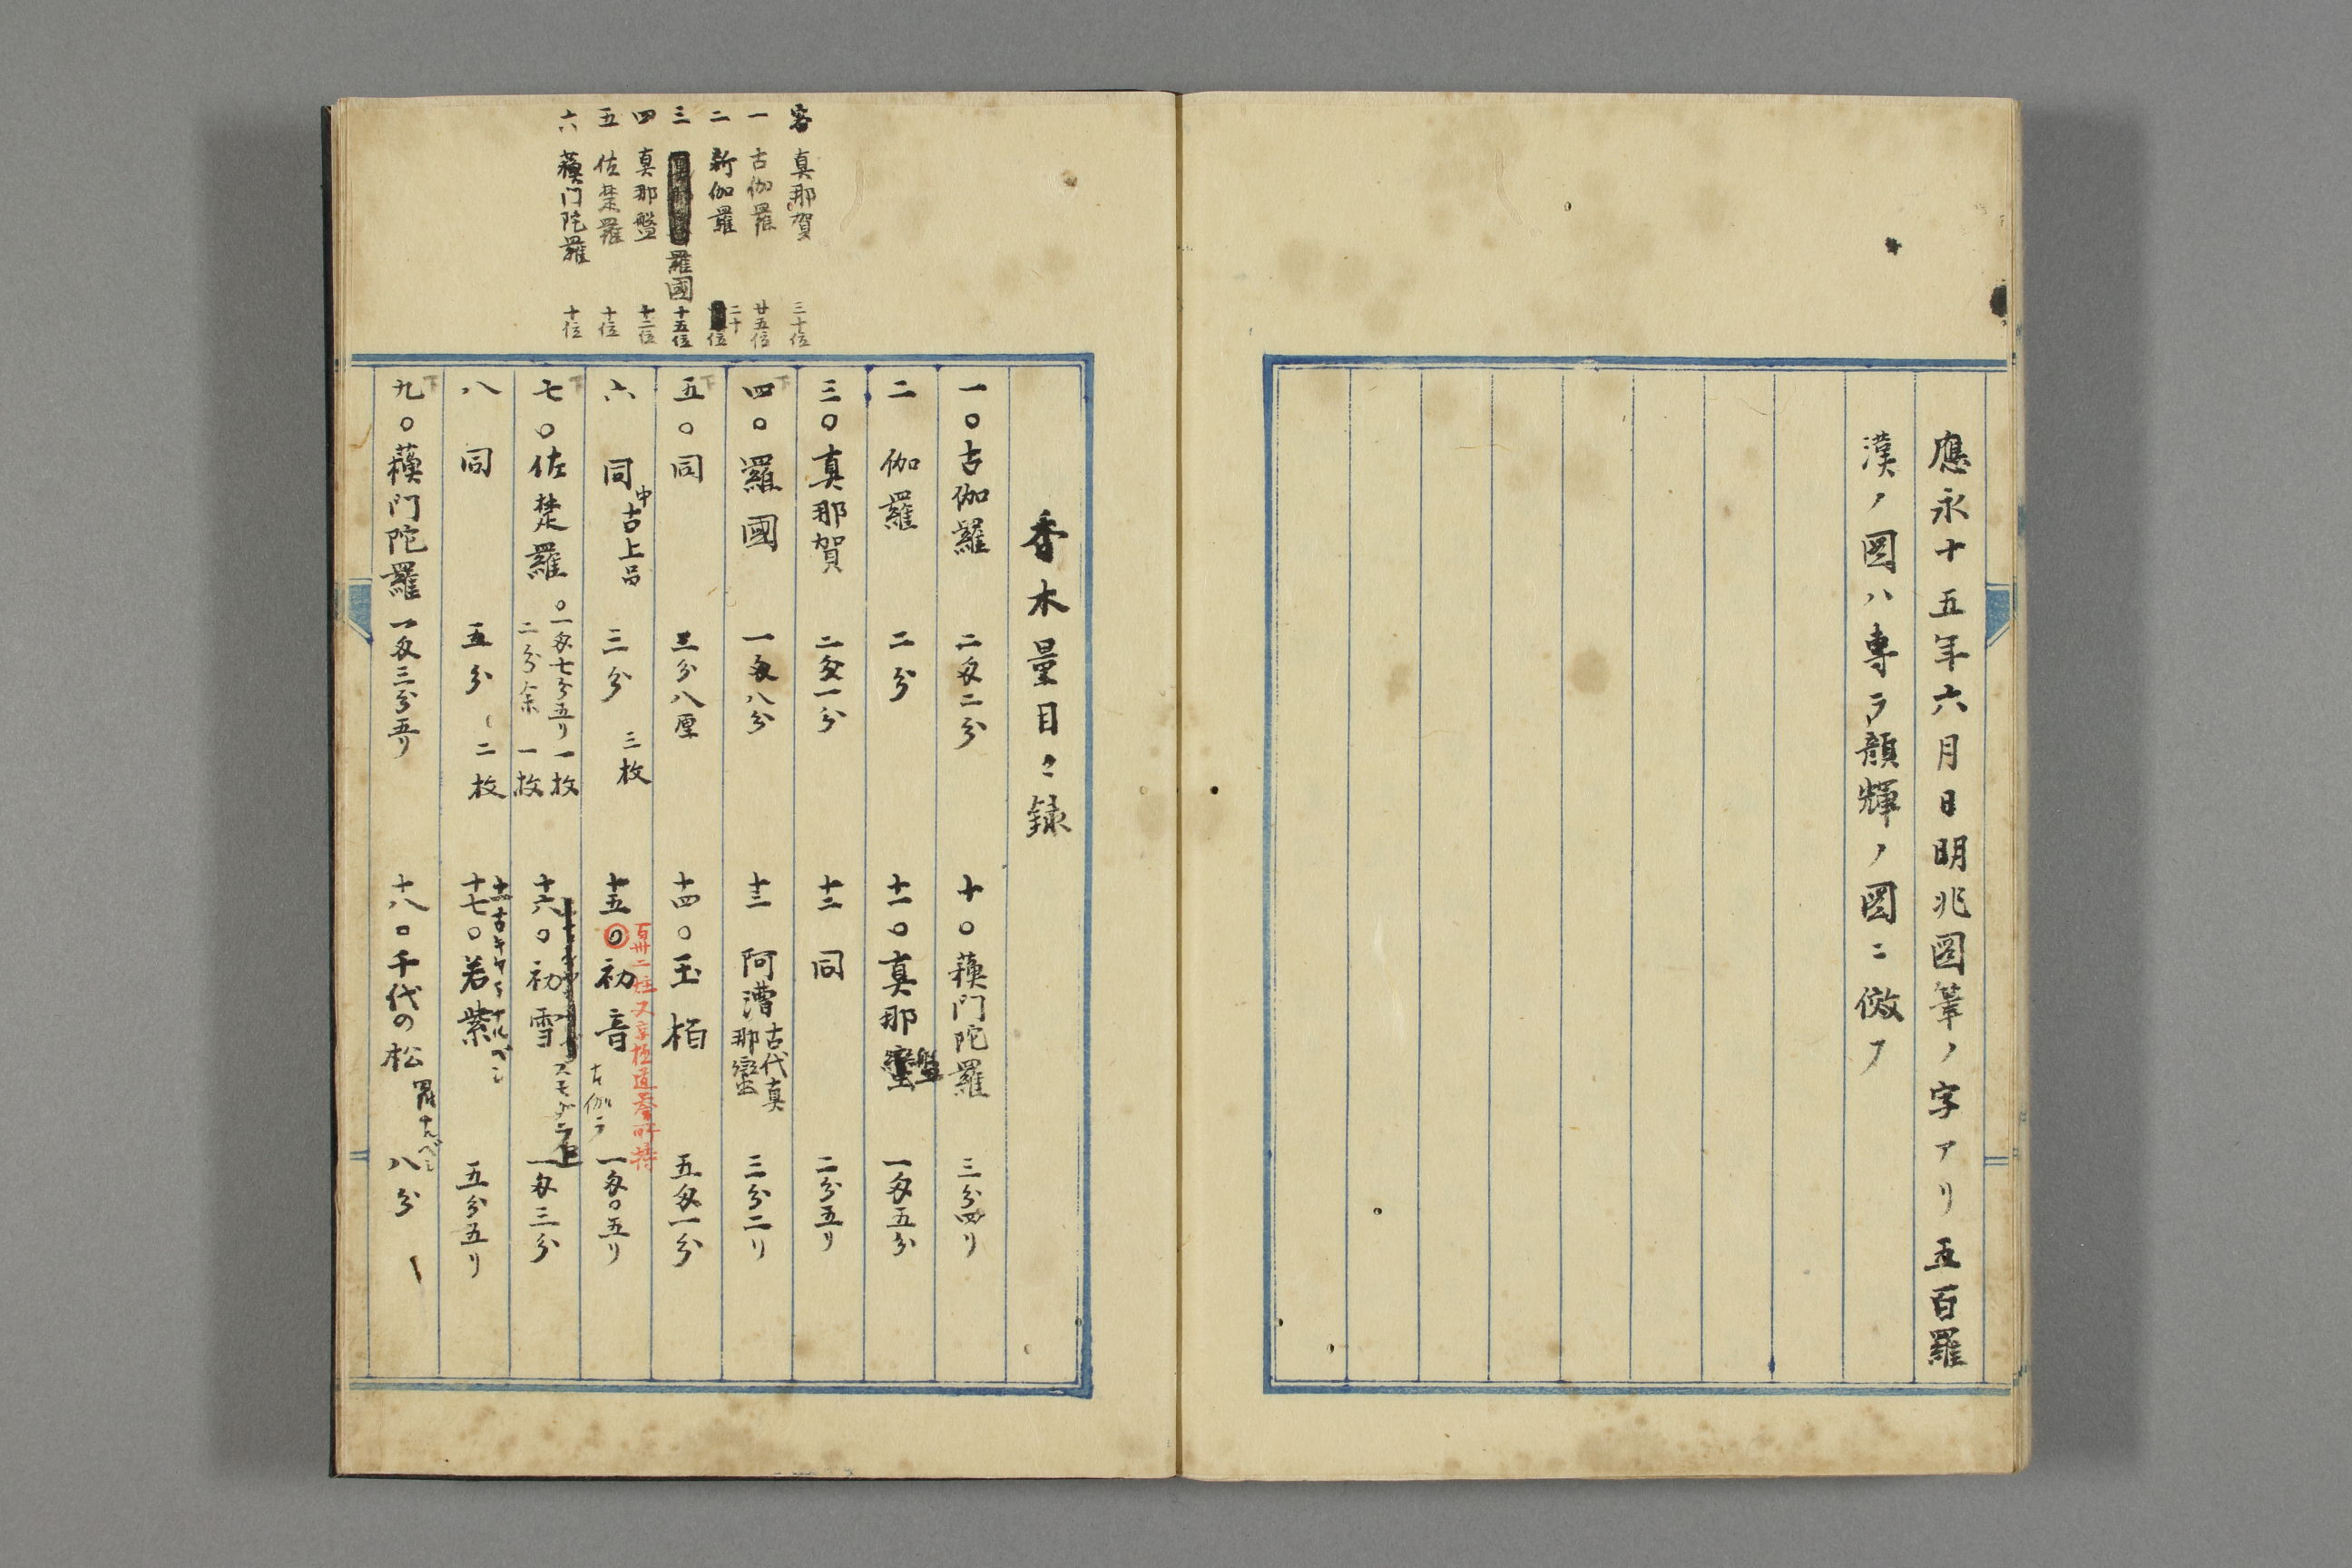 應永十五年六月日明兆図筆ノ字アリ五百羅
漢ノ図ハ専ラ顔輝ノ図ニ倣フ
客 真那賀 三十位
一 古伽羅 廿五位
二 新伽羅 二十位
三 羅國 十五位
四 真那盤 十二位
五 佐楚羅 十位
六 蘓門陀羅 十位
香木量目々録
一〇古伽羅 二匁二分
二 伽羅 二分
三〇真那賀 二匁一分
下
四〇羅國 一匁八分
下
五〇同 三分八厘
六 同 中古上品 三分 三枚
下
七〇佐楚羅 〇一匁七分五リ 一枚
二分余 一枚
八 同 五分 二枚
下
九〇蘓門陀羅 一匁三分五リ
十〇蘓門陀羅 三分四リ
十一〇真那盤 一匁五分
十二 同 二分五リ
十三 阿漕 古代真那蛮 三分二リ
十四〇玉栢 五匁一分
百卅二 又京極道誉所持
十五〇初音 古伽ラ 一匁〇五リ
十六〇初雪 スモダラ上 一匁三分
古キャラナルベシ
十七〇若紫 五分五リ
十八〇千代の松 羅ナルベシ 八分